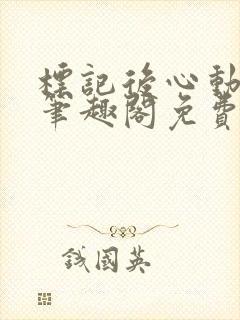 標記後心動
筆趣閣免費
錢國英